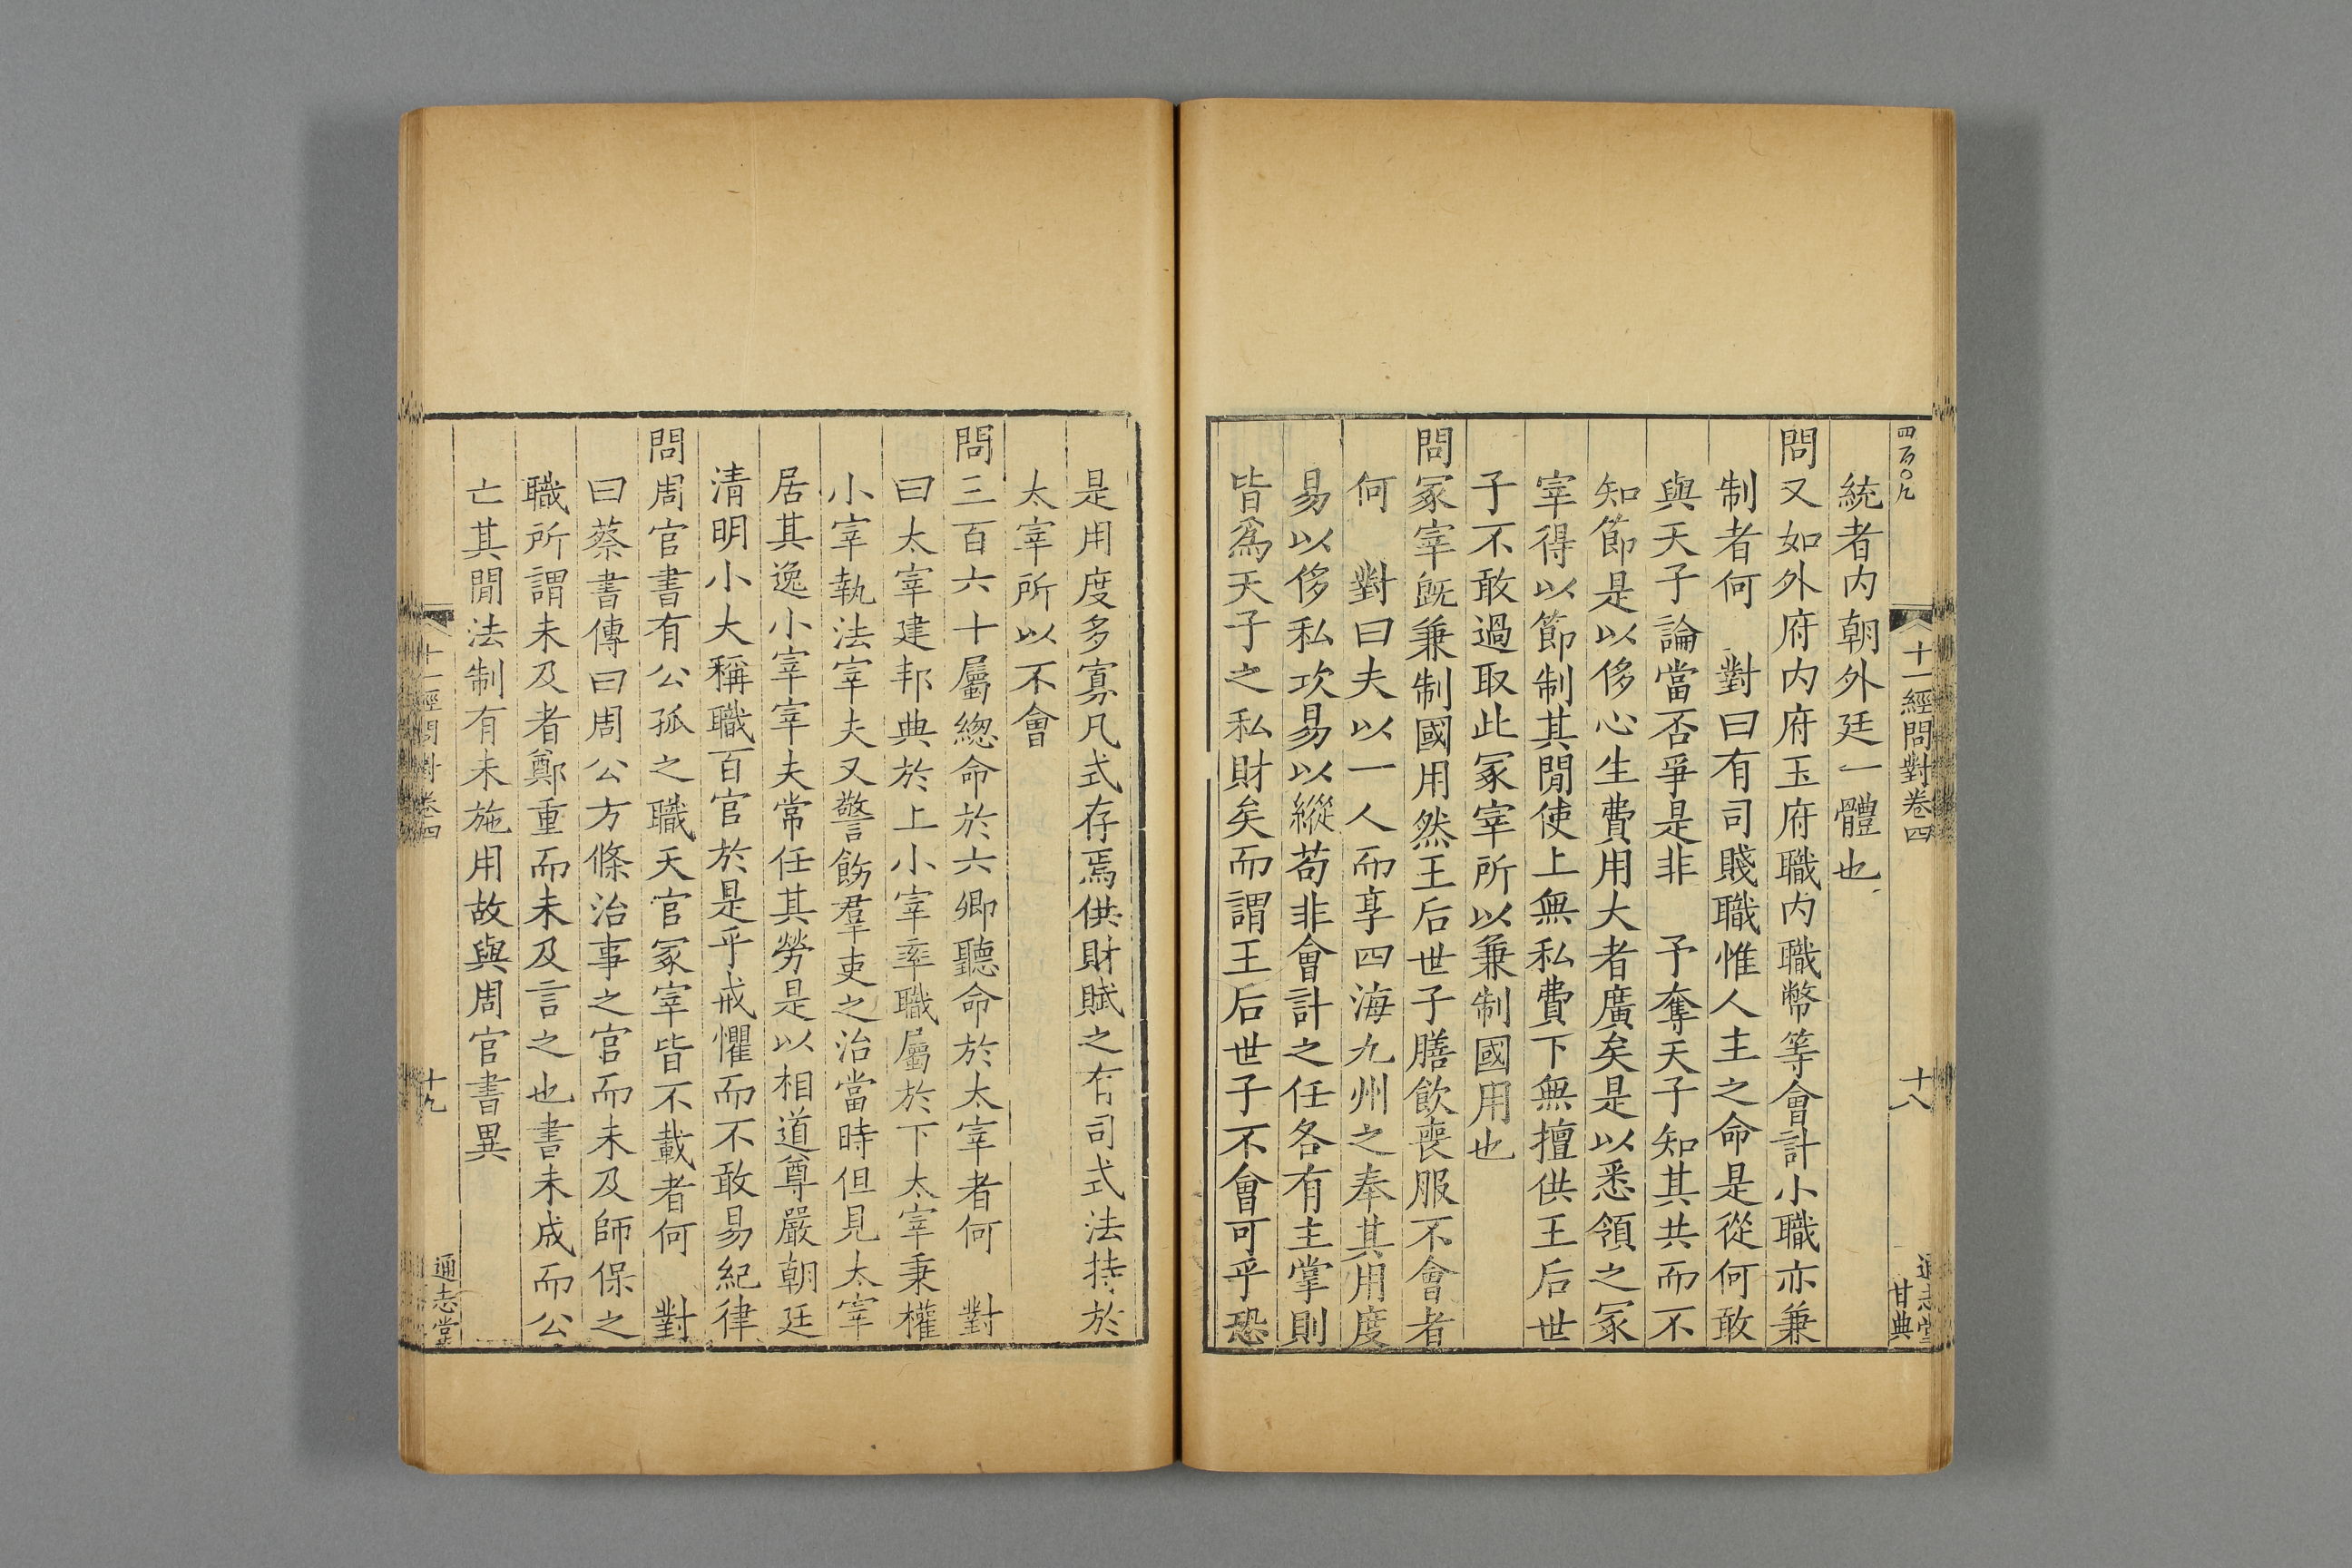 四百〇九
十一經問對卷四
十八
通志堂
甘典
統者内朝外廷一體也
問又如外府内府玉府職内職幣等會計小職亦兼
制者何　對曰有司賤職惟人主之命是從何敢
與天子論當否爭是非　予奪天子知其共而不
知節是以侈心生費用大者廣矣是以悉領之冢
宰得以節制其閒使上無私費下無擅供王后世
子不敢過取此冢宰所以兼制國用也
問冢宰旣兼制國用然王后世子膳飲喪服不會者
何　對曰夫以一人而享四海九州之奉其用度
易以侈私欢易以縱苟非會計之任各有主掌則
皆爲天子之私財矣而謂王后世子不會可乎恐
是用度多寡凡式存焉供財賦之有司式法持於
太宰所以不會
問三百六十屬緫命於六卿聽命於太宰者何　對
曰太宰建邦典於上小宰率職屬於下太宰秉權
小宰執法宰夫又警飭羣吏之治當時但見太宰
居其逸小宰宰夫常任其勞是以相道尊嚴朝廷
清明小大稱職百官於是乎戒懼而不敢易紀律
問周官書有公孤之職天官冢宰皆不載者何　對
曰蔡書傳曰周公方條治事之官而未及師保之
職所謂未及者鄭重而未及言之也書未成而公
亡其閒法制有未施用故與周官書異
十一經問對卷四
十九
通志堂